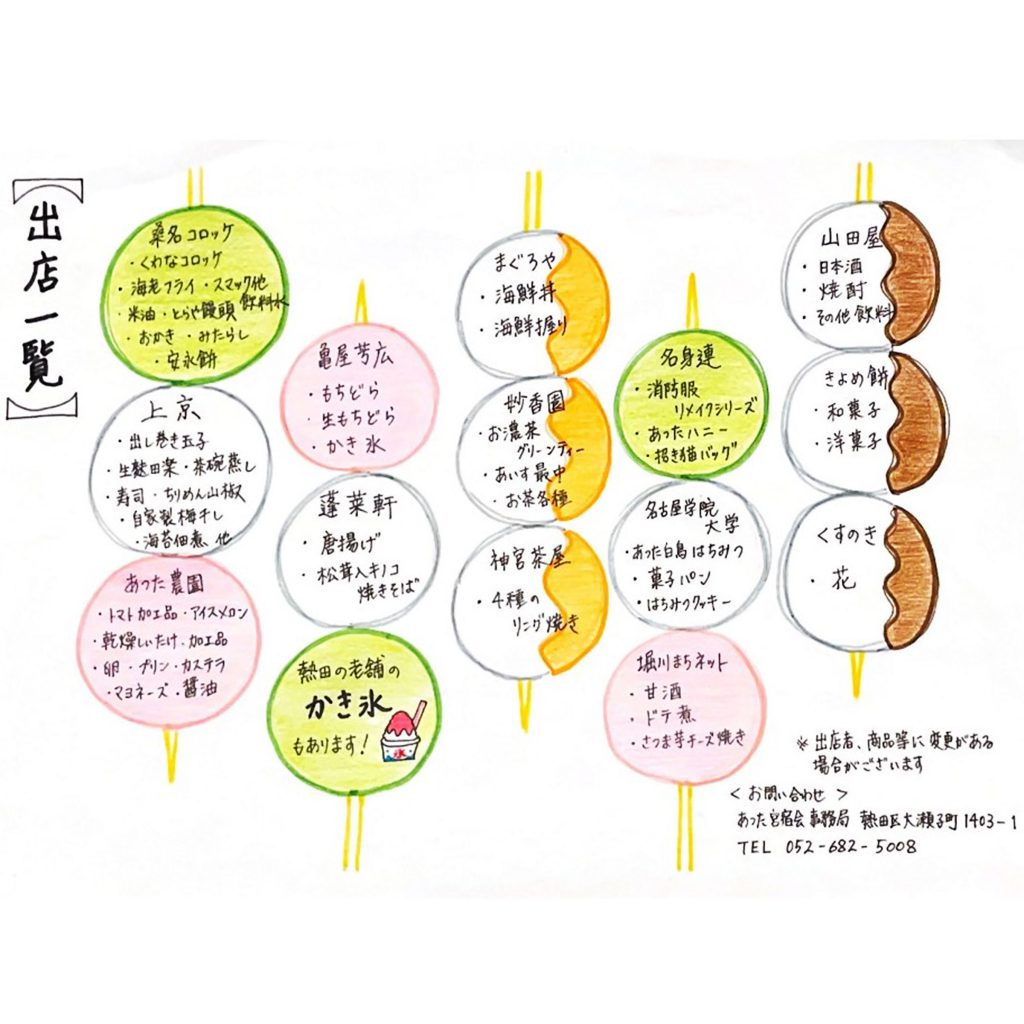 【出店一覧】
桑名コロッケ
・くわなコロッケ
・海老フライ・スマック他
飲料水
米油・とらや饅頭
・おかき・みたらし
・安永餅
上京
・出し巻き玉子
・生麩田楽・茶碗蒸し
・寿司・ちりめん山椒
・自家製梅干し
・海苔佃煮 他
あった農園
・トマト加工品・アイスメロン
・乾燥しいたけ、加工品
・卵・プリン・カステラ
・マヨネーズ・醤油
亀屋芳広
・もちどら
・生もちどら
・かき氷
蓬莱軒
・唐揚げ
・松茸入キノコ
焼きそば
熱田の老舗の
かき氷
もあります!
氷
まぐろや
・海鮮丼
・海鮮握り
妙香園
・お濃茶
グリーンティー
・あいす最中
・お茶各種
神宮茶屋
・4種の
リング焼き
名身連
・消防服
リメイクシリーズ
・あったハニー
・招き猫バッグ
名古屋学院
大学
・あった白鳥はちみつ
・菓子パン
・はちみつクッキー
堀川まちネット
・甘酒
・ドテ煮
・さつま芋チーズ焼き
山田屋
・日本酒
・焼酎
・その他飲料
きよめ餅
・和菓子
・洋菓子
くすのき
・花
※出店者、商品等に変更がある
場合がございます
<お問い合わせ>
あった宮宿会事務局 熱田区大瀬子町1403-1
TEL 052-682-5008